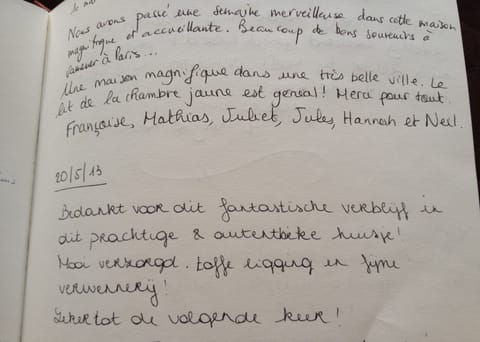 Nous avons passé une semaine merveilleuse dans cette maison
magnifique et accueillante. Beaucoup de bons souvenirs à
ramener à Paris...
Une maison magnifique dans une très belle ville. Le
lit de la chambre jaune est genial! Merci pour tout.
Françoise, Mathias, Juliet, Jules, Hannah et Neil.
20/5/13
Bedankt voor dit fantastische verblijf in
dit prachtige & autentieke huisje!
Mooi verzorgd. toffe ligging en fijne
verwennerij!
Zeker tot de volgende keer!